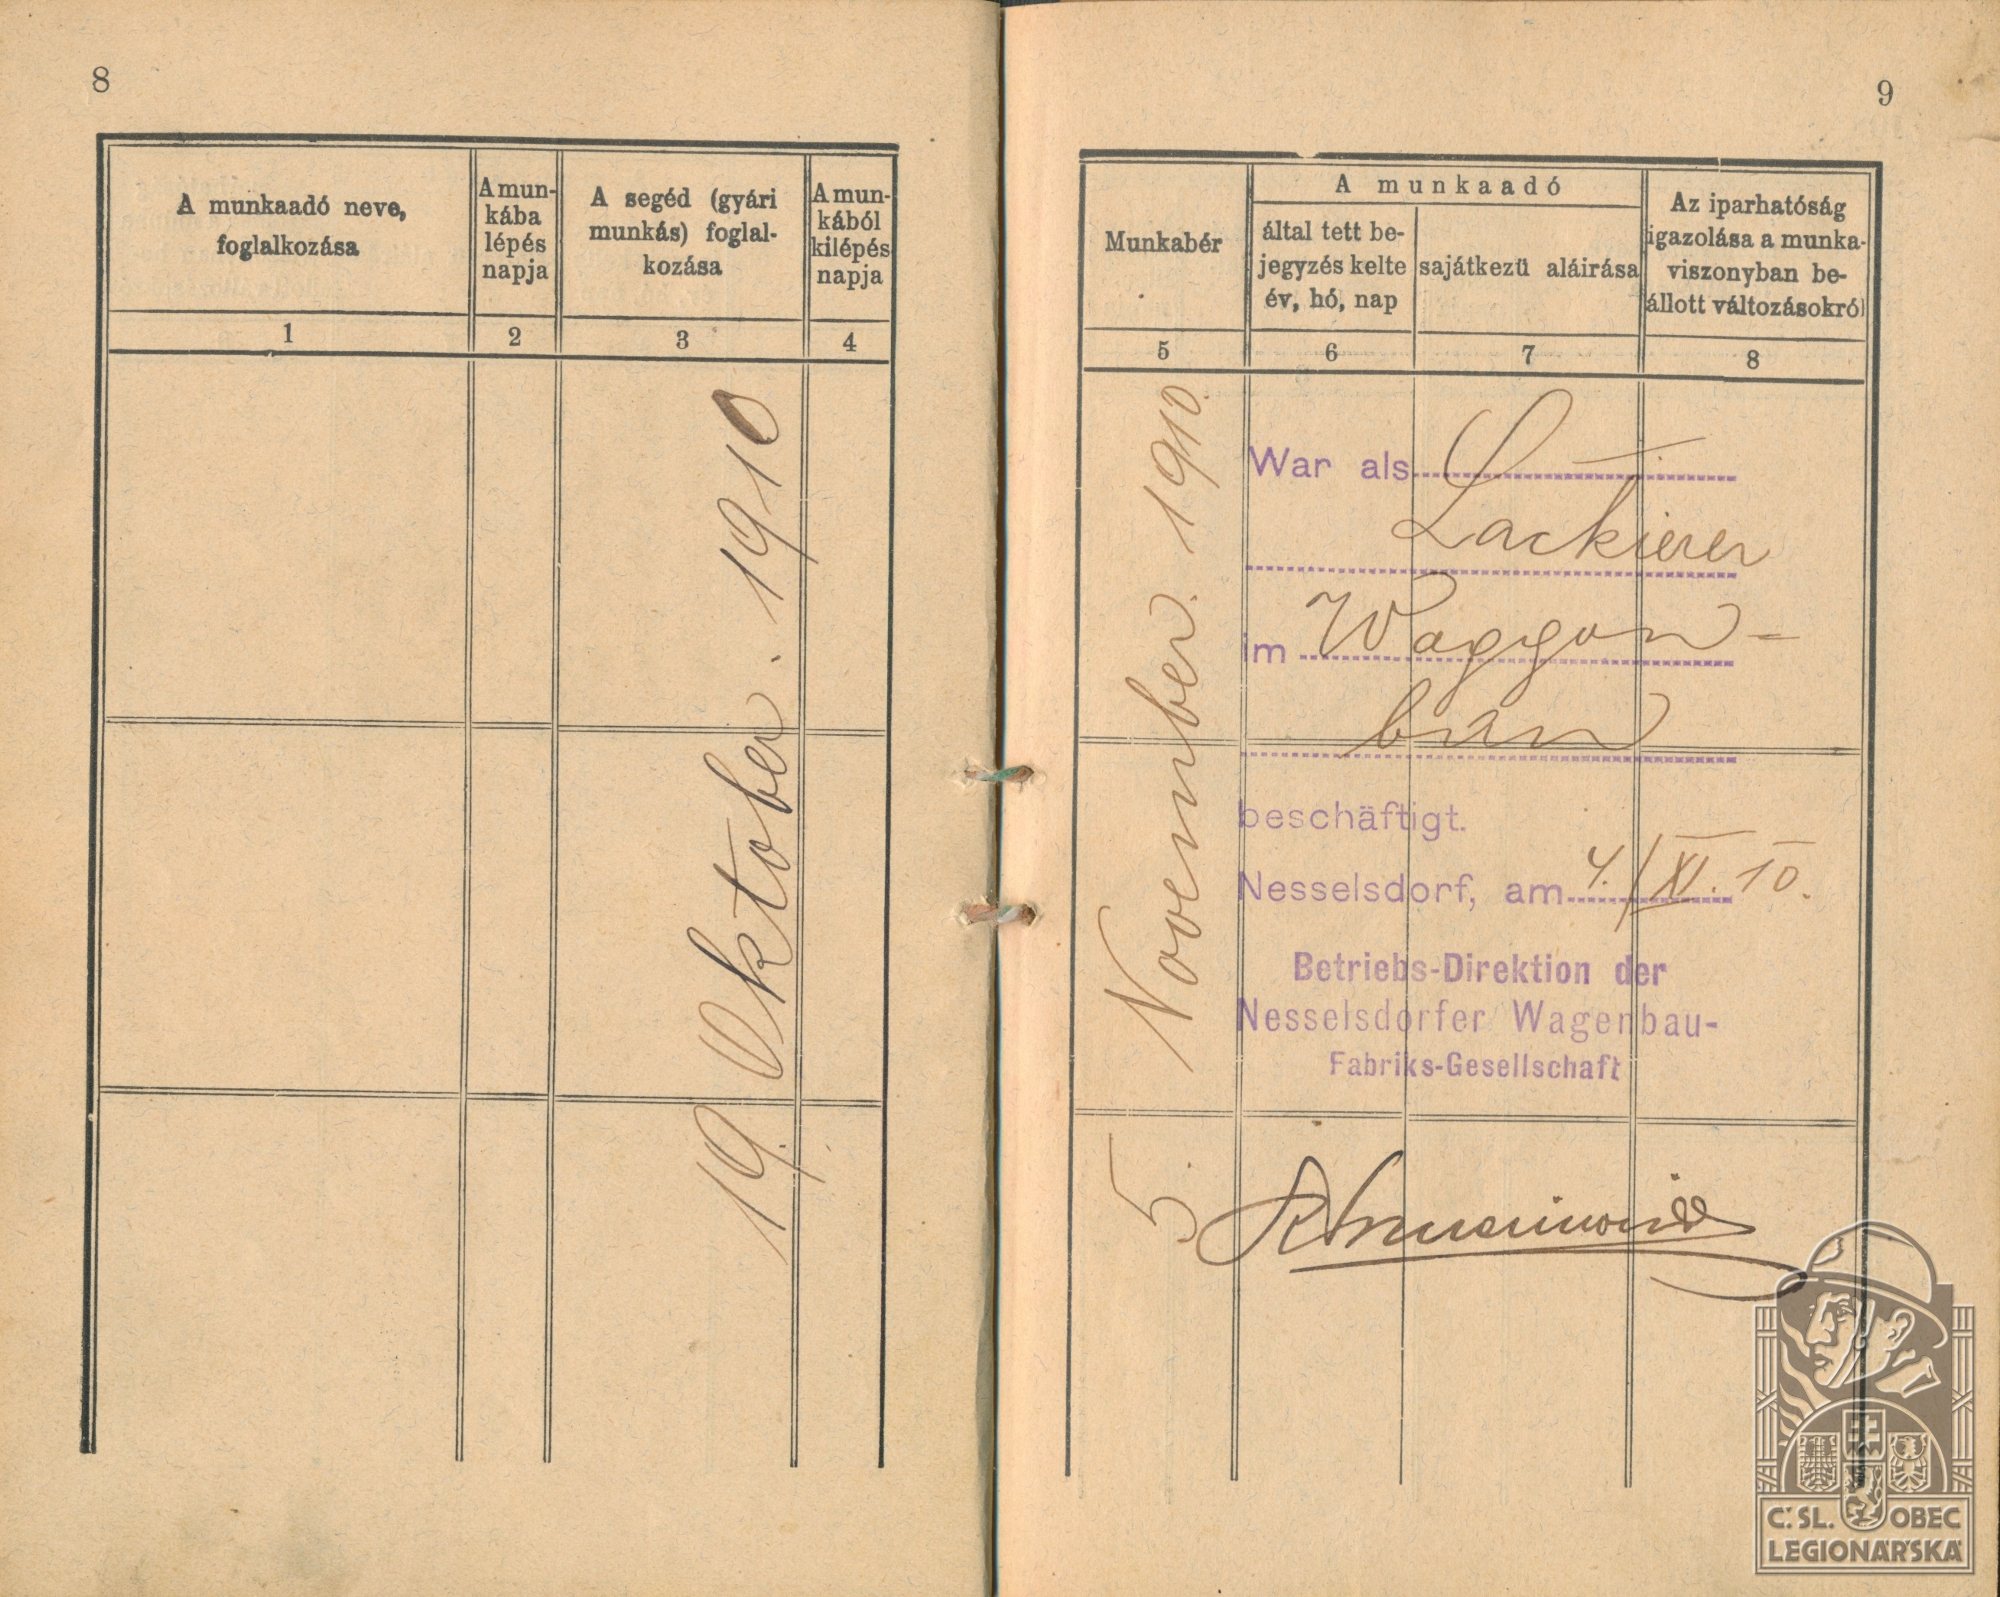 8
A munkaadó neve,
foglalkozása
A mun-
kába
lépés
napja
A segéd (gyári
munkás) foglal-
kozása
A mun-
kából
kilépés
napja
1
2
3
4
19. Oktober. 1910
9
Munkabér
A munkaadó
által tett be-
jegyzés kelte
év, hó, nap
sajátkezü aláirása
Az iparhatóság
igazolása a munka-
viszonyban be-
állott változásokról
5
6
7
8
5. November. 1910.
War als
Lackierer
im Waggon-
bau
beschäftigt.
Nesselsdorf, am 4./XI. 10.
Betriebs-Direktion der
Nesselsdorfer Wagenbau-
Fabriks-Gesellschaft
Č. SL. OBEC
LEGIONÁŘSKÁ